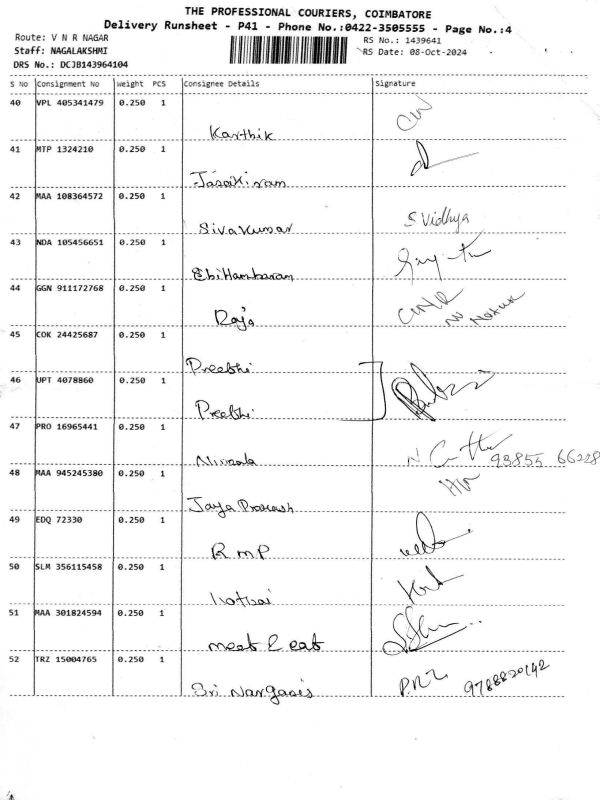 THE PROFESSIONAL COURIERS, COIMBATORE
Delivery Runsheet - P41 - Phone No.:0422-3505555 - Page No.:4
Route: V N R NAGAR
RS No.: 1439641
Staff: NAGALAKSHMI
RS Date: 08-Oct-2024
DRS No.: DCJB143964104
S No Consignment No Weight PCS Consignee Details Signature
40 VPL 405341479 0.250 1
Karthik
41 MTP 1324210 0.250 1
42 MAA 108364572 0.250 1
Sivakumar S Vidhya
43 NDA 105456651 0.250 1
44 GGN 911172768 0.250 1
Raja
45 COK 24425687 0.250 1
Preethi
46 UPT 4078860 0.250 1
Preethi
47 PRO 16965441 0.250 1
Nirmala 93855 66228
48 MAA 945245380 0.250 1
Jaya Prakash
49 EDQ 72330 0.250 1
R M P
50 SLM 356115458 0.250 1
51 MAA 301824594 0.250 1
meat & eat
52 TRZ 15004765 0.250 1
Sri Nargasis 9788820142